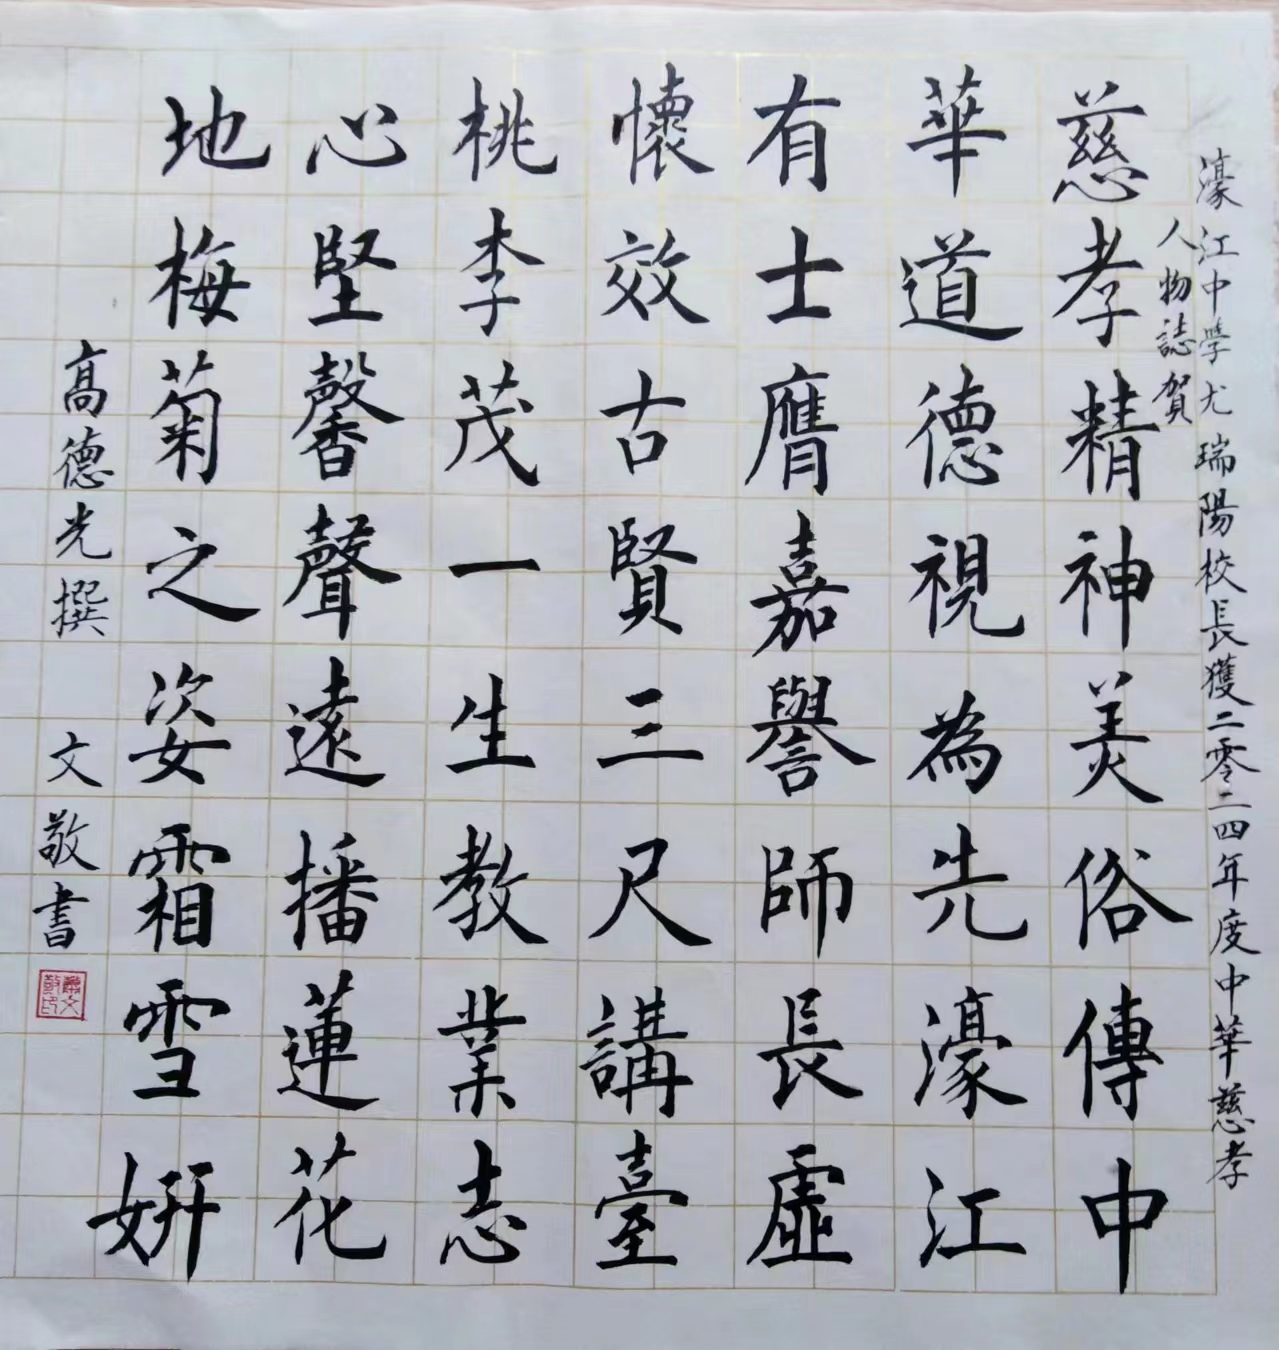 濠江中學尤瑞陽校長獲二零二四年度中華慈孝
人物誌賀
慈孝精神美俗傳中
華道德視為先濠江
有士膺嘉譽師長虛
懷效古賢三尺講臺
桃李茂一生教業志
心堅馨聲遠播蓮花
地梅菊之姿霜雪妍
高德光撰 文敬書